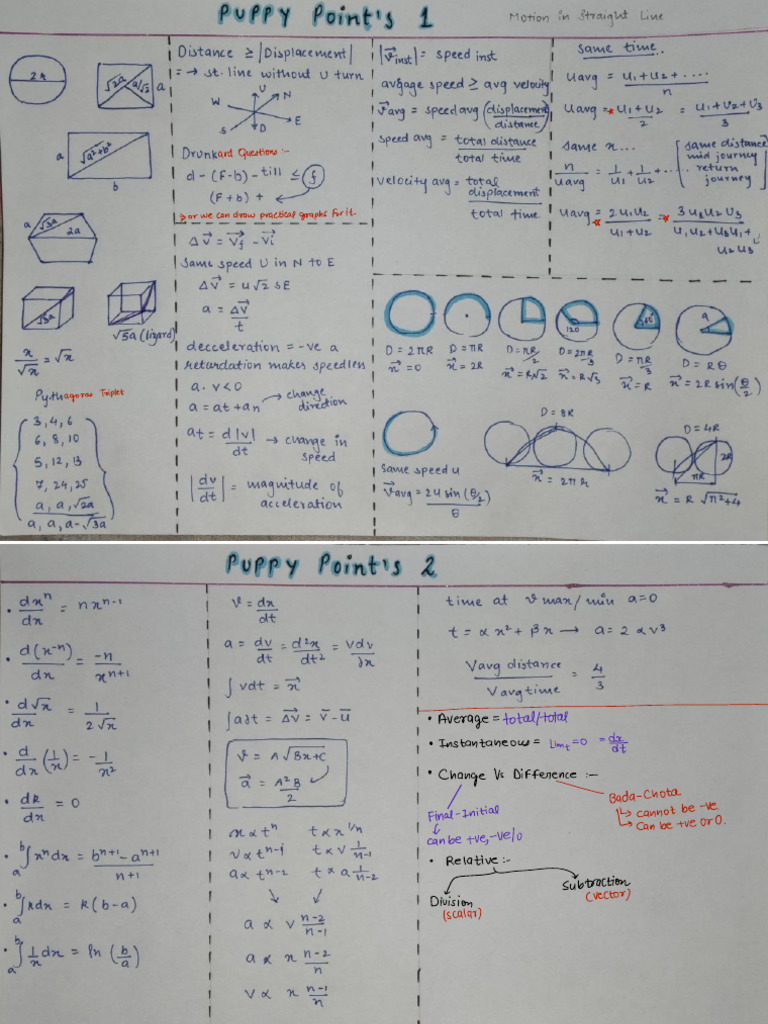 PUPPY POINT'S 1
Motion in Straight Line
2r
√2a
a/√2
a
a
√a²+b²
b
a
√3a
2a
√3a
√3a (lizard)
x/√x = √x
Pythagoras Triplet
3, 4, 6
6, 8, 10
5, 12, 13
7, 24, 25
a, a, √2a
a, a, a-√3a
Distance ≥ |Displacement|
= → st. line without U turn
U
N
W
E
S
D
Drunkard Questions :-
d - (F-b) - till ≤ f
(F+b) +
→ or we can draw practical graphs for it.
Δv⃗ = v⃗f - v⃗i
Same speed U in N to E
Δv⃗ = u√2 SE
a = Δv⃗/t
decceleration = -ve a
retardation makes speedless
a. v < 0
a = at + an → change direction
at = d|v|/dt → change in speed
|dv/dt| = magnitude of acceleration
|v⃗inst| = speed inst
avgage speed ≥ avg velocity
v⃗avg = speed avg (displacement/distance)
speed avg = total distance/total time
velocity avg = total displacement/total time
same time..
uavg = u1+u2+..../n
uavg = * u1+u2/2 = u1+u2+u3/3
same x...
n/uavg = 1/u1 + 1/u2 + .... [same distance mid journey return journey]
uavg = * 2u1u2/u1+u2 = * 3u1u2u3/u1u2+u3u1+u2u3
120
60°
a
D = 2πR
x⃗ = 0
D = πR
x⃗ = 2R
D = πR/2
x⃗ = R√2
D = 2πR/3
x⃗ = R√3
D = πR/3
x⃗ = R
D = Rθ
x⃗ = 2R sin(θ/2)
same speed u
v⃗avg = 2u sin(θ/2)/θ
D = 8R
x⃗ = 2πr
D = 4R
2R
πR
x⃗ = R √π²+4
PUPPY POINT'S 2
• dxⁿ/dx = nxⁿ⁻¹
• d(x⁻ⁿ)/dx = -n/xⁿ⁺¹
• d√x/dx = 1/2√x
• d/dx (1/x) = -1/x²
• dk/dx = 0
• a∫b xⁿdx = bⁿ⁺¹-aⁿ⁺¹/n+1
• a∫b kdx = k(b-a)
• a∫b 1/x dx = ln(b/a)
v = dx/dt
a = dv/dt = d²x/dt² = vdv/dx
∫vdt = x⃗
∫adt = Δv⃗ = v⃗ - u⃗
v = A√Bx+C
a⃗ = A²B/2
x ∝ tⁿ t ∝ x 1/n
v ∝ tⁿ⁻¹ t ∝ v 1/n-1
a ∝ tⁿ⁻² t ∝ a 1/n-2
a ∝ v n-2/n-1
a ∝ x n-2/n
v ∝ x n-1/n
time at v max/min a=0
t = αx² + βx → a = 2αv³
Vavg distance/Vavg time = 4/3
• Average = total/total
• Instantaneous = Limt=0 = dx/dt
• Change Vs Difference :-
Final-Initial
can be +ve, -ve/0
Bada-Chota
↳ cannot be -ve
↳ Can be +ve or 0.
• Relative :-
Division
(scalar)
Subtraction
(vector)